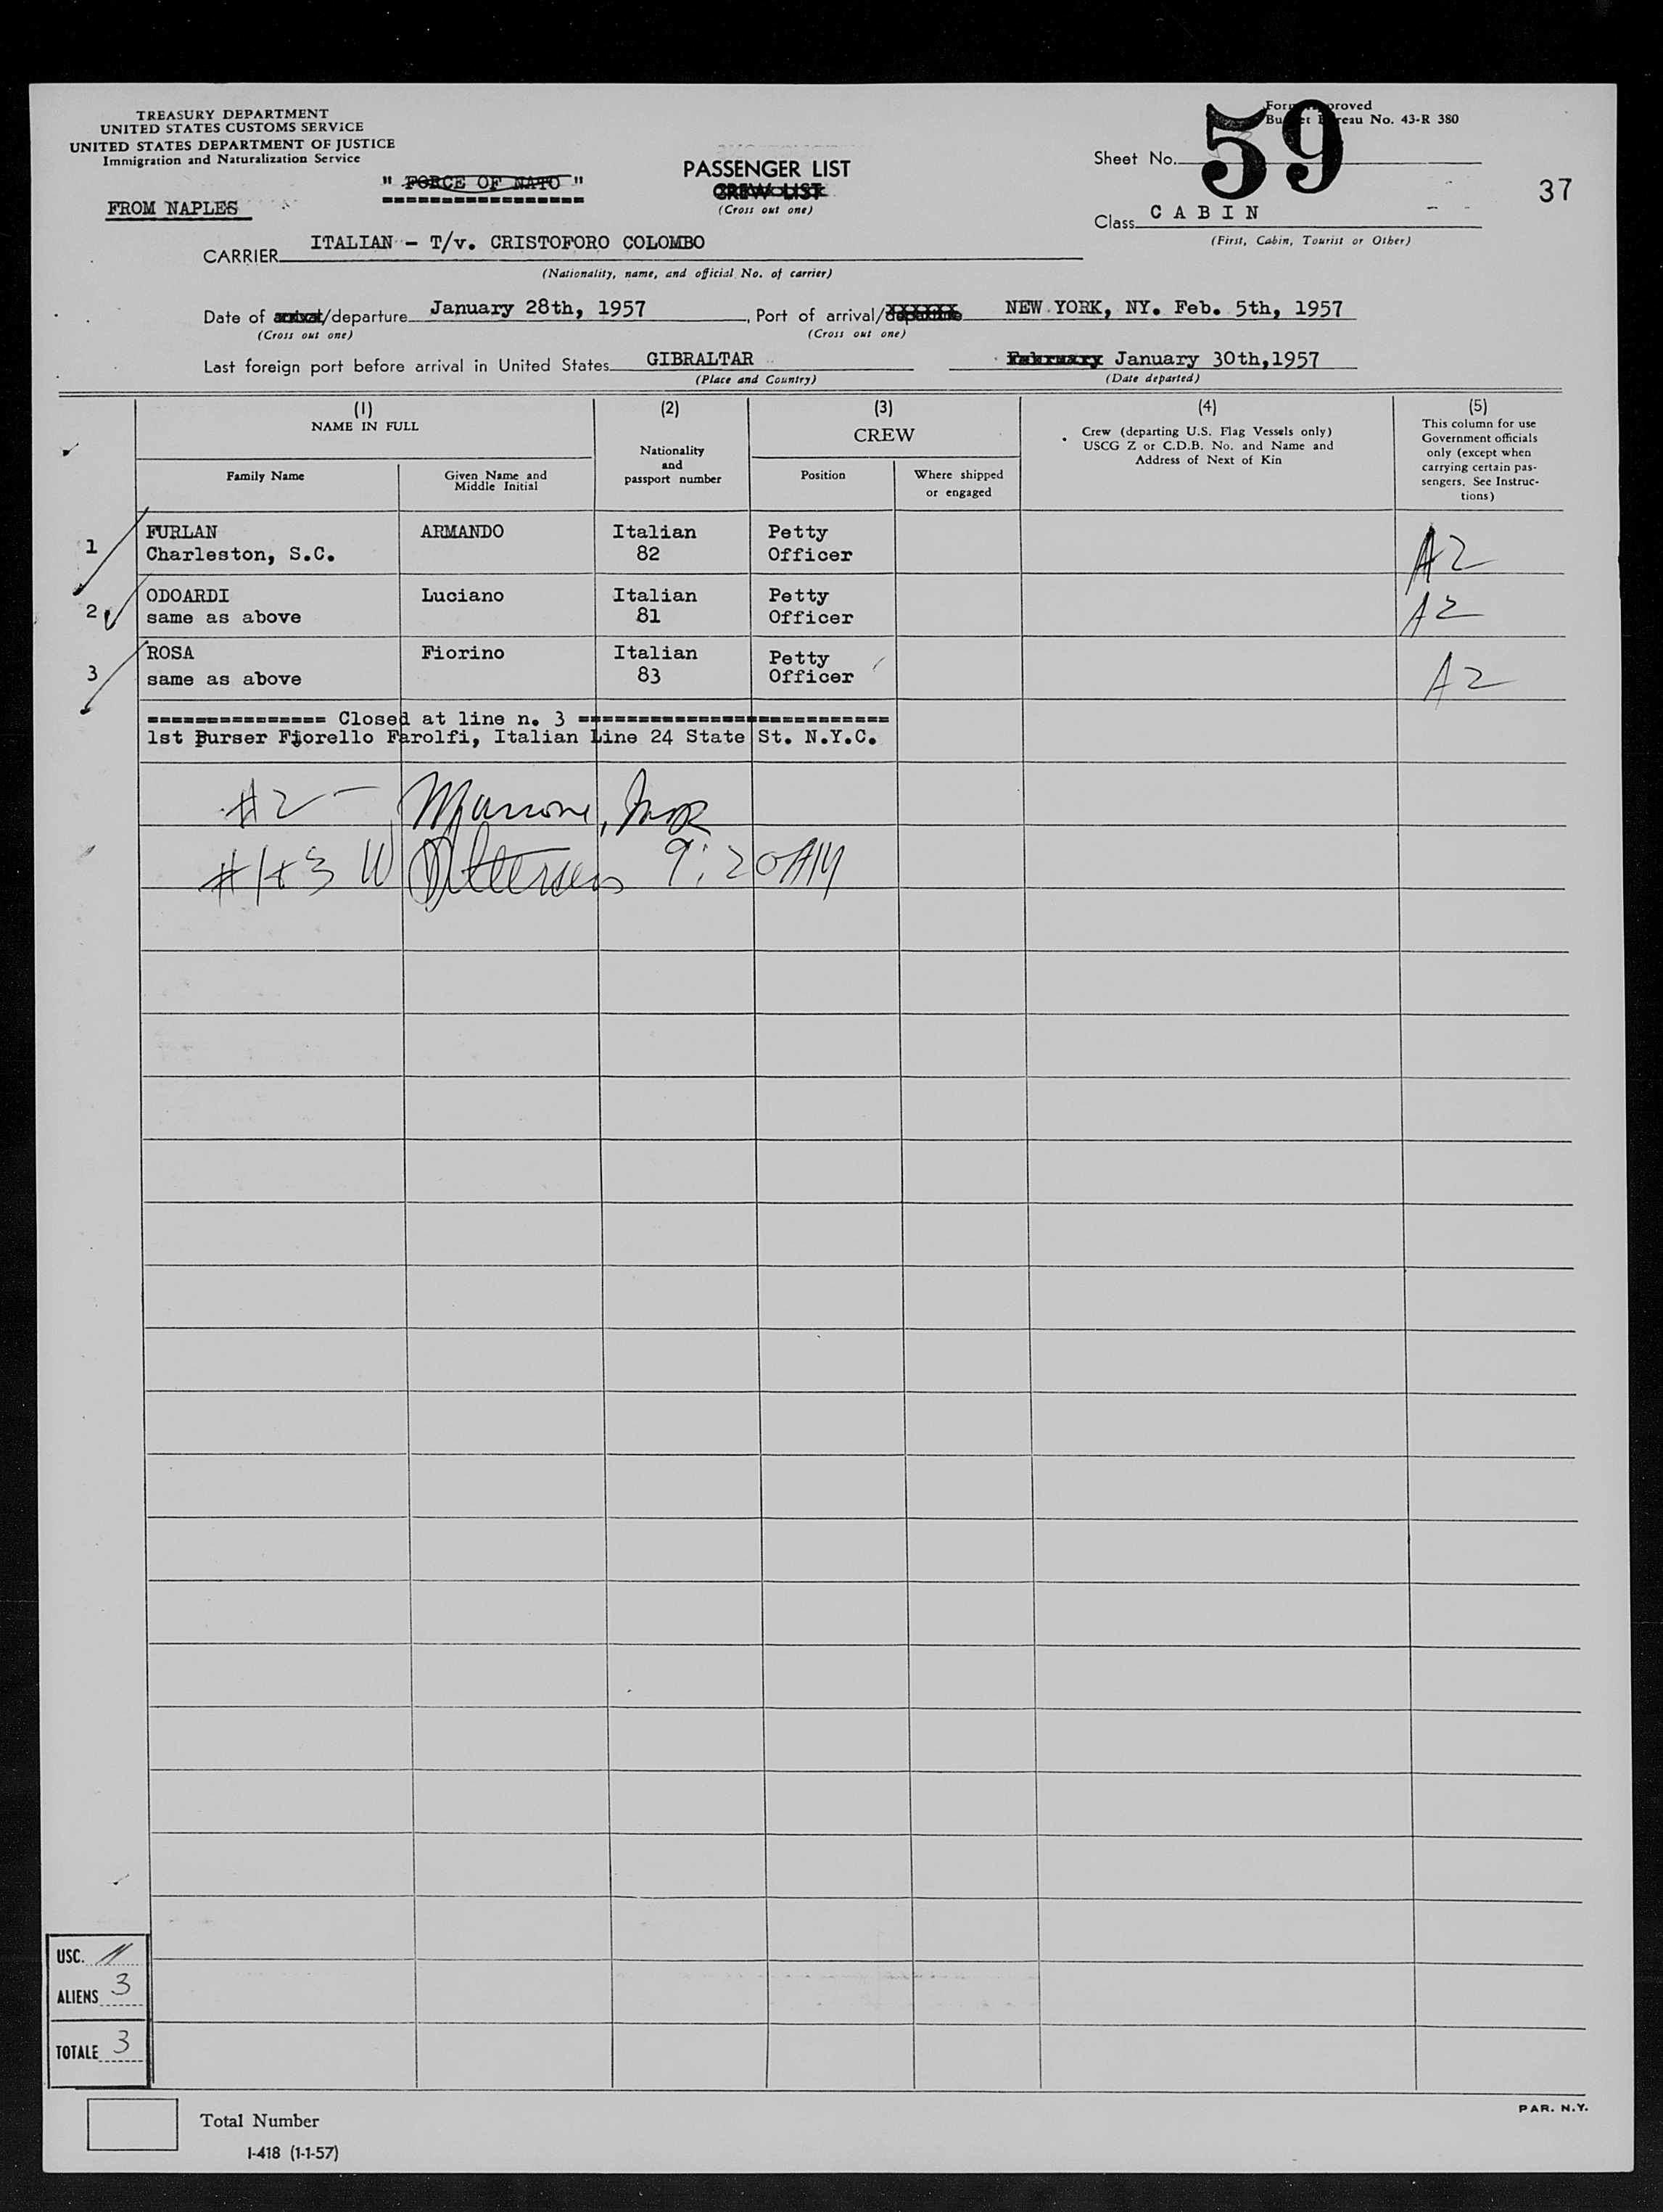 TREASURY DEPARTMENT
UNITED STATES CUSTOMS SERVICE
UNITED STATES DEPARTMENT OF JUSTICE
Immigration and Naturalization Service
Form Approved
Budget Bureau No. 43-R 380
" FORCE OF NATO "
=================
FROM NAPLES
PASSENGER LIST
CREW LIST
(Cross out one)
Sheet No. 59
37
Class CABIN
(First, Cabin, Tourist or Other)
CARRIER ITALIAN - T/v. CRISTOFORO COLOMBO
(Nationality, name, and official No. of carrier)
Date of arrival/departure January 28th, 1957, Port of arrival/departure NEW YORK, NY. Feb. 5th, 1957
(Cross out one) (Cross out one)
Last foreign port before arrival in United States GIBRALTAR February January 30th,1957
(Place and Country) (Date departed)
(1)
NAME IN FULL
Family Name
Given Name and
Middle Initial
(2)
Nationality
and
passport number
(3)
CREW
Position
Where shipped
or engaged
(4)
Crew (departing U.S. Flag Vessels only)
USCG Z or C.D.B. No. and Name and
Address of Next of Kin
(5)
This column for use
Government officials
only (except when
carrying certain pas-
sengers. See Instruc-
tions)
1 FURLAN ARMANDO Italian Petty A2
Charleston, S.C. 82 Officer
2 ODOARDI Luciano Italian Petty A2
same as above 81 Officer
3 ROSA Fiorino Italian Petty A2
same as above 83 Officer
=============== Closed at line n. 3 ==========================
1st Purser Fiorello Farolfi, Italian Line 24 State St. N.Y.C.
#2 -
#1+3 W 9:20AM
USC.
ALIENS 3
TOTALE 3
Total Number
I-418 (1-1-57)
PAR. N.Y.